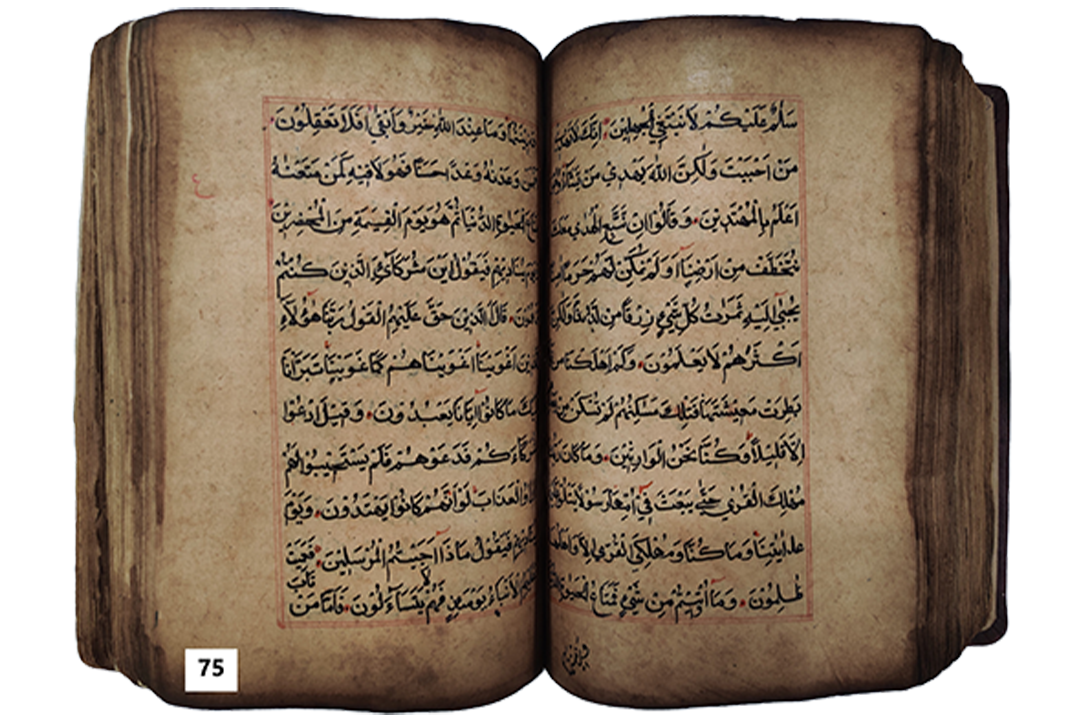 سَلٰمٌ عَلَيْكُمْ لَا نَبْتَغِي الْجٰهِلِيْنَ اِنَّكَ لَا تَهْدِي
مَنْ اَحْبَبْتَ وَلٰكِنَّ اللّٰهَ يَهْدِي مَنْ يَشَآءُ وَهُوَ
اَعْلَمُ بِالْمُهْتَدِيْنَ وَقَالُوْا اِنْ نَتَّبِعِ الْهُدٰي مَعَكَ
نُتَخَطَّفْ مِنْ اَرْضِنَا اَوَلَمْ نُمَكِّنْ لَهُمْ حَرَمًا
يُجْبٰى اِلَيْهِ ثَمَرٰتُ كُلِّ شَيْءٍ رِزْقًا مِنْ لَدُنَّا وَلٰكِنَّ
اَكْثَرَهُمْ لَا يَعْلَمُوْنَ وَكَمْ اَهْلَكْنَا مِنْ
بَطِرَتْ مَعِيْشَتَهَا فَتِلْكَ مَسٰكِنُهُمْ لَمْ تُسْكَنْ مِنْ
اِلَّا قَلِيْلًا وَكُنَّا نَحْنُ الْوَارِثِيْنَ وَمَا كَانَ رَبُّكَ
مُهْلِكَ الْقُرٰي حَتّٰي يَبْعَثَ فِيْ اُمِّهَا رَسُوْلًا يَتْلُوْا
اٰيٰتِنَا وَمَا كُنَّا مُهْلِكِي الْقُرٰي اِلَّا وَاَهْلُهَا
ظٰلِمُوْنَ وَمَا اُوْتِيْتُمْ مِنْ شَيْءٍ فَمَتَاعُ الْحَيٰوةِ
وَزِيْنَتُهَا وَمَا عِنْدَ اللّٰهِ خَيْرٌ وَاَبْقٰي اَفَلَا تَعْقِلُوْنَ
وَعَدْنٰهُ وَعْدًا حَسَنًا فَهُوَ لَاقِيْهِ كَمَنْ مَتَّعْنٰهُ
مَتَاعَ الْحَيٰوةِ الدُّنْيَا ثُمَّ هُوَ يَوْمَ الْقِيٰمَةِ مِنَ الْمُحْضَرِيْنَ
وَيَوْمَ يُنَادِيْهِمْ فَيَقُوْلُ اَيْنَ شُرَكَآءِيَ الَّذِيْنَ كُنْتُمْ
قَالَ الَّذِيْنَ حَقَّ عَلَيْهِمُ الْقَوْلُ رَبَّنَا هٰٓؤُلَآءِ
الَّذِيْنَ اَغْوَيْنَا اَغْوَيْنَاهُمْ كَمَا غَوَيْنَا تَبَرَّاْنَا
اِلَيْكَ مَا كَانُوْا اِيَّانَا يَعْبُدُوْنَ وَقِيْلَ ادْعُوْا
شُرَكَآءَكُمْ فَدَعَوْهُمْ فَلَمْ يَسْتَجِيْبُوْا لَهُمْ
وَرَاَوُا الْعَذَابَ لَوْ اَنَّهُمْ كَانُوْا يَهْتَدُوْنَ وَيَوْمَ
يُنَادِيْهِمْ فَيَقُوْلُ مَاذَا اَجَبْتُمُ الْمُرْسَلِيْنَ فَعَمِيَتْ
عَلَيْهِمُ الْاَنْبَآءُ يَوْمَئِذٍ فَهُمْ لَا يَتَسَآءَلُوْنَ فَاَمَّا مَنْ
تَابَ
75